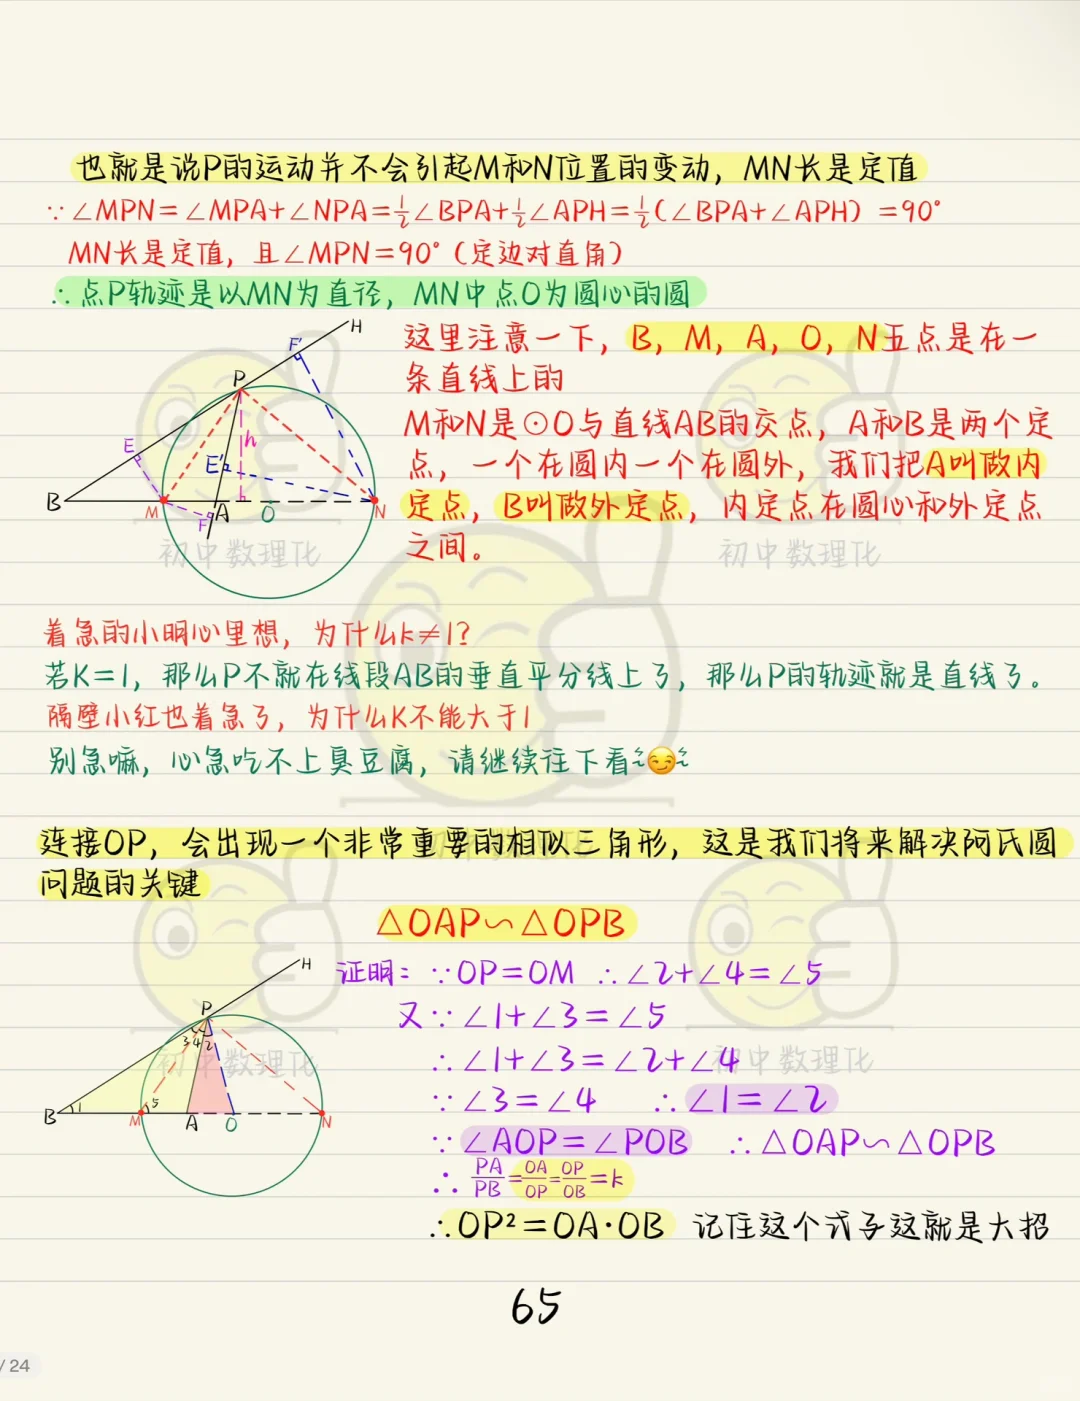 也就是说P的运动并不会引起M和N位置的变动，MN长是定值
∵∠MPN=∠MPA+∠NPA=½∠BPA+½∠APH=½(∠BPA+∠APH）=90°
MN长是定值，且∠MPN=90°（定边对直角）
∴点P轨迹是以MN为直径，MN中点O为圆心的圆
H
F'
P
E
h
E'
B
M
F
A
O
N
这里注意一下，B，M，A，O，N五点是在一
条直线上的
M和N是⊙O与直线AB的交点，A和B是两个定
点，一个在圆内一个在圆外，我们把A叫做内
定点，B叫做外定点，内定点在圆心和外定点
之间。
初中数理化
初中数理化
着急的小明心里想，为什么k≠1？
若K=1，那么P不就在线段AB的垂直平分线上了，那么P的轨迹就是直线了。
隔壁小红也着急了，为什么K不能大于1
别急嘛，心急吃不上臭豆腐，请继续往下看~😏~
初中数理化
连接OP，会出现一个非常重要的相似三角形，这是我们将来解决阿氏圆
问题的关键
△OAP∽△OPB
H
P
3 4 2
B
1
M
5
A
O
N
初中数理化
初中数理化
证明：∵OP=OM ∴∠2+∠4=∠5
又∵∠1+∠3=∠5
∴∠1+∠3=∠2+∠4
∵∠3=∠4 ∴∠1=∠2
∵∠AOP=∠POB ∴△OAP∽△OPB
∴PA/PB=OA/OP=OP/OB=k
∴OP²=OA·OB 记住这个式子这就是大招
65
/ 24